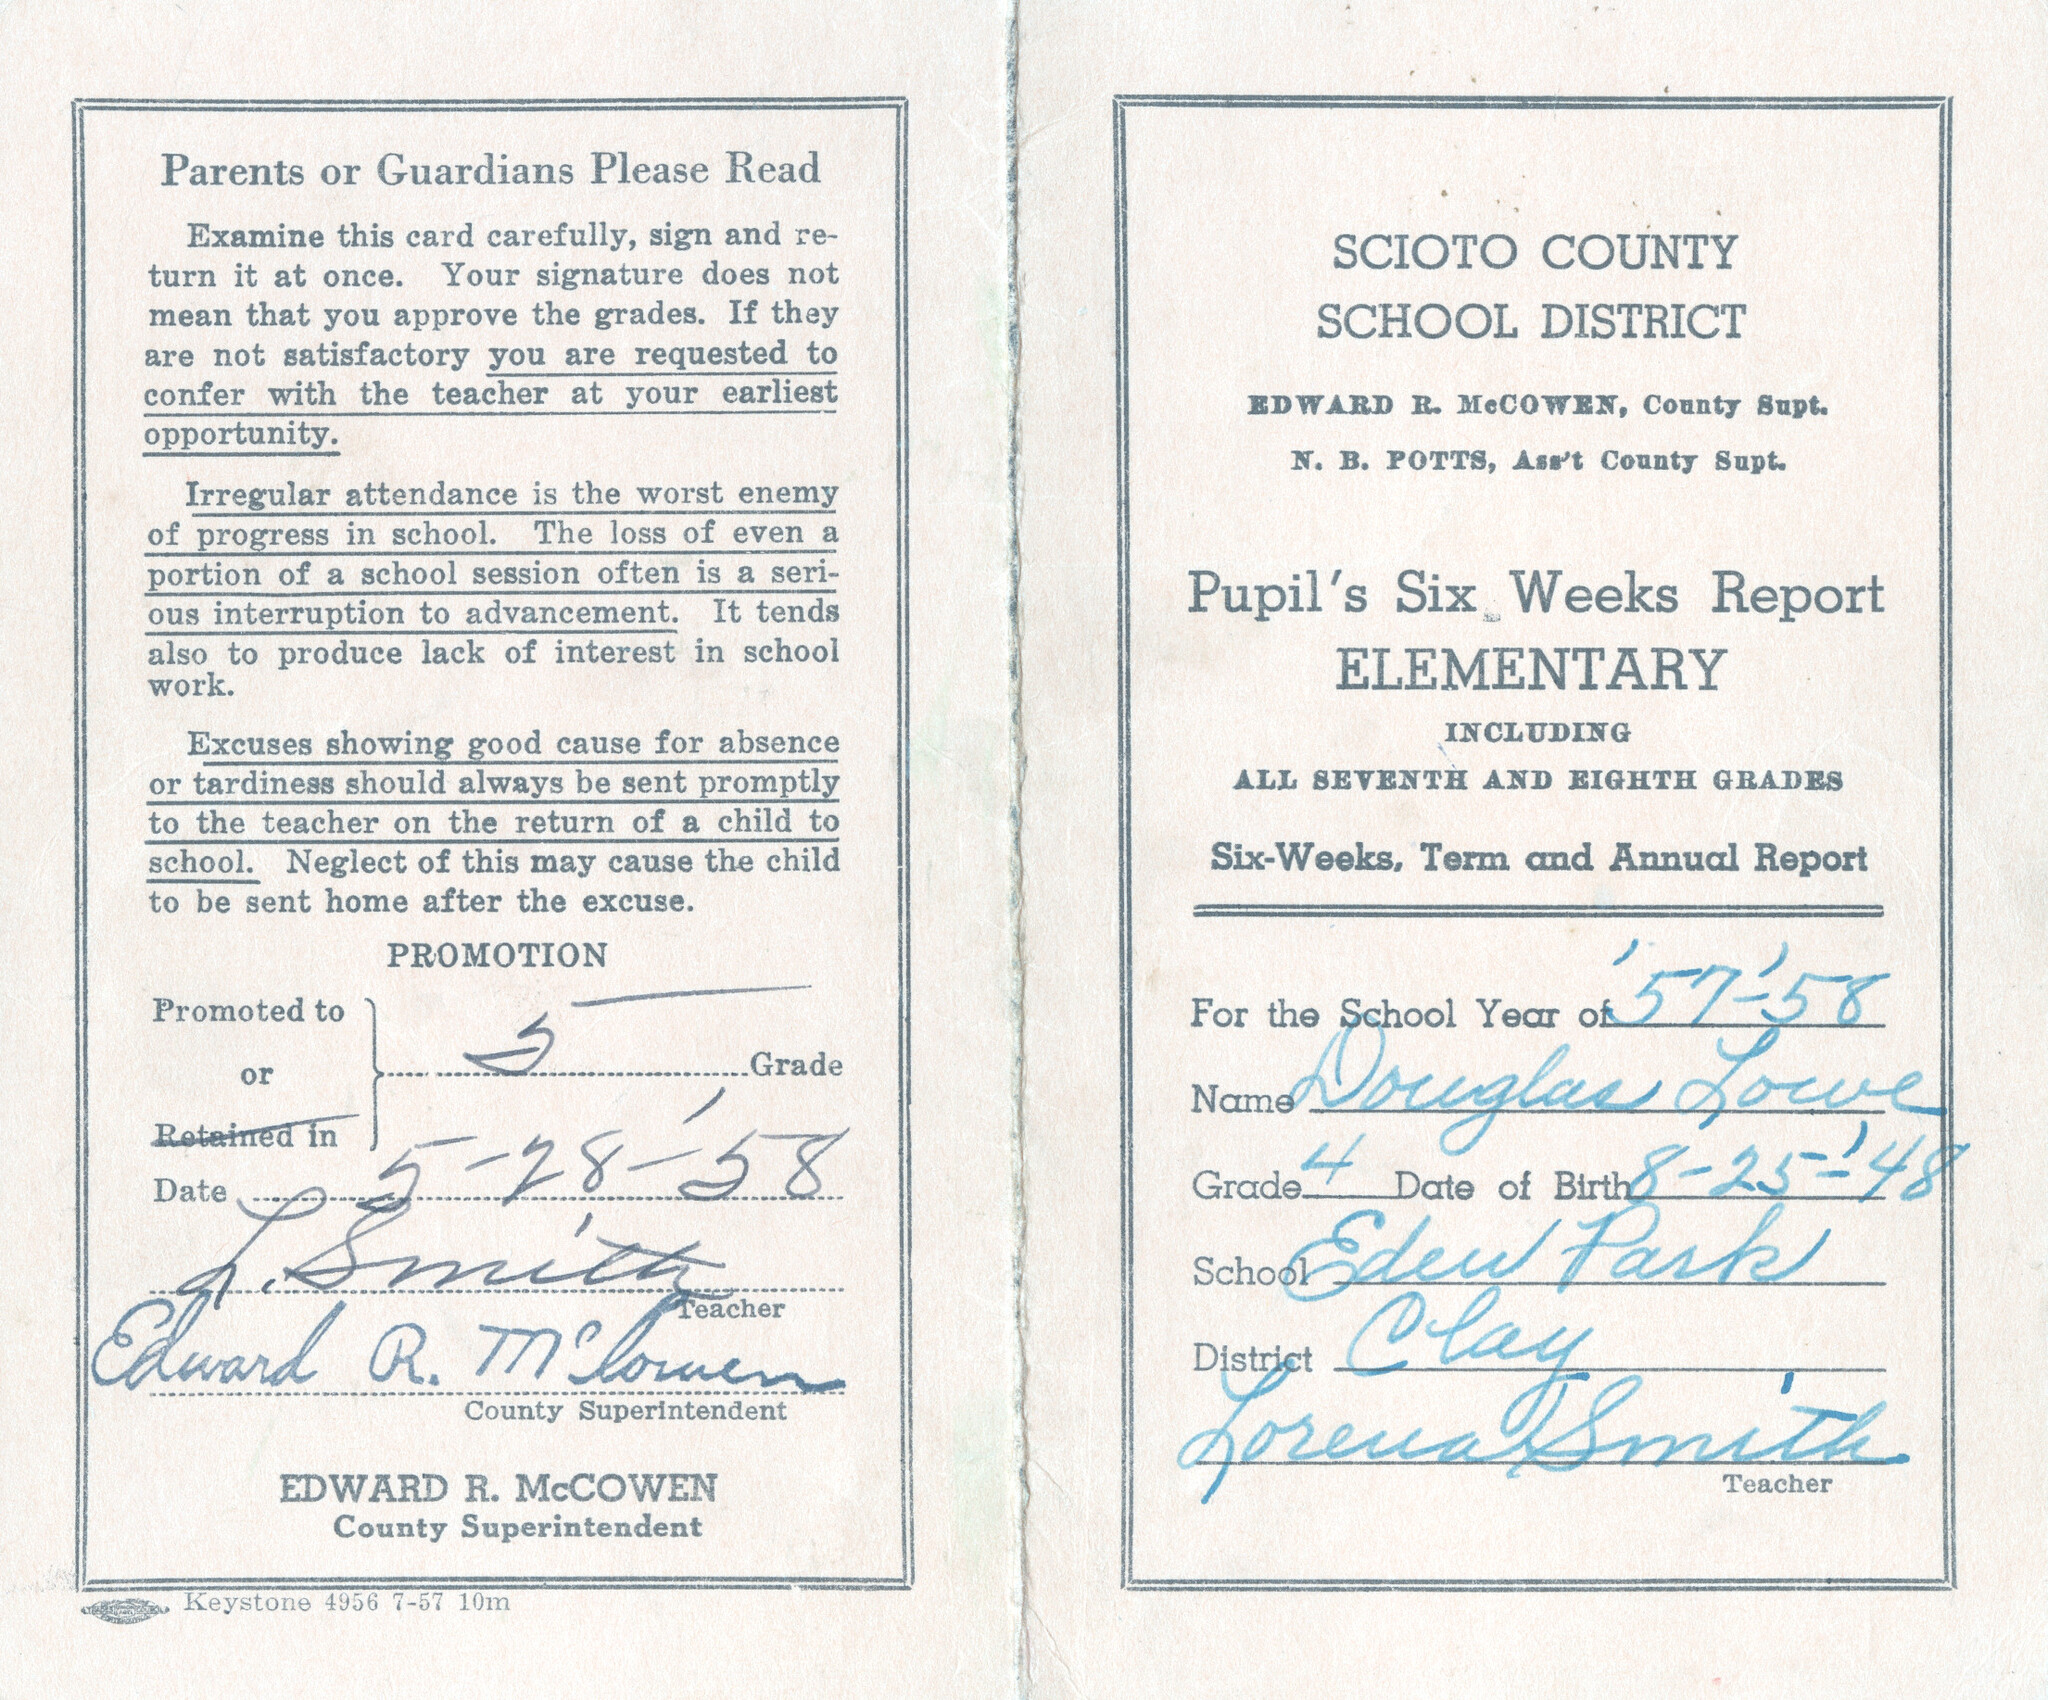 Parents or Guardians Please Read
Examine this card carefully, sign and re-
turn it at once. Your signature does not
mean that you approve the grades. If they
are not satisfactory you are requested to
confer with the teacher at your earliest
opportunity.
Irregular attendance is the worst enemy
of progress in school. The loss of even a
portion of a school session often is a seri-
ous interruption to advancement. It tends
also to produce lack of interest in school
work.
Excuses showing good cause for absence
or tardiness should always be sent promptly
to the teacher on the return of a child to
school. Neglect of this may cause the child
to be sent home after the excuse.
PROMOTION
Promoted to
or
Retained in
5 Grade
Date 5-28-'58
L. Smith
Teacher
Edward R. McCowen
County Superintendent
EDWARD R. McCOWEN
County Superintendent
Keystone 4956 7-57 10m
SCIOTO COUNTY
SCHOOL DISTRICT
EDWARD R. McCOWEN, County Supt.
N. B. POTTS, Ass't County Supt.
Pupil's Six Weeks Report
ELEMENTARY
INCLUDING
ALL SEVENTH AND EIGHTH GRADES
Six-Weeks, Term and Annual Report
For the School Year of '57-'58
Name Douglas Lowe
Grade 4 Date of Birth 8-25-'48
School Eden Park
District Clay
Lorena Smith
Teacher